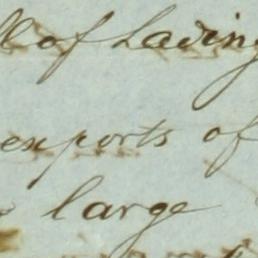 ll of Lading
exports of
large